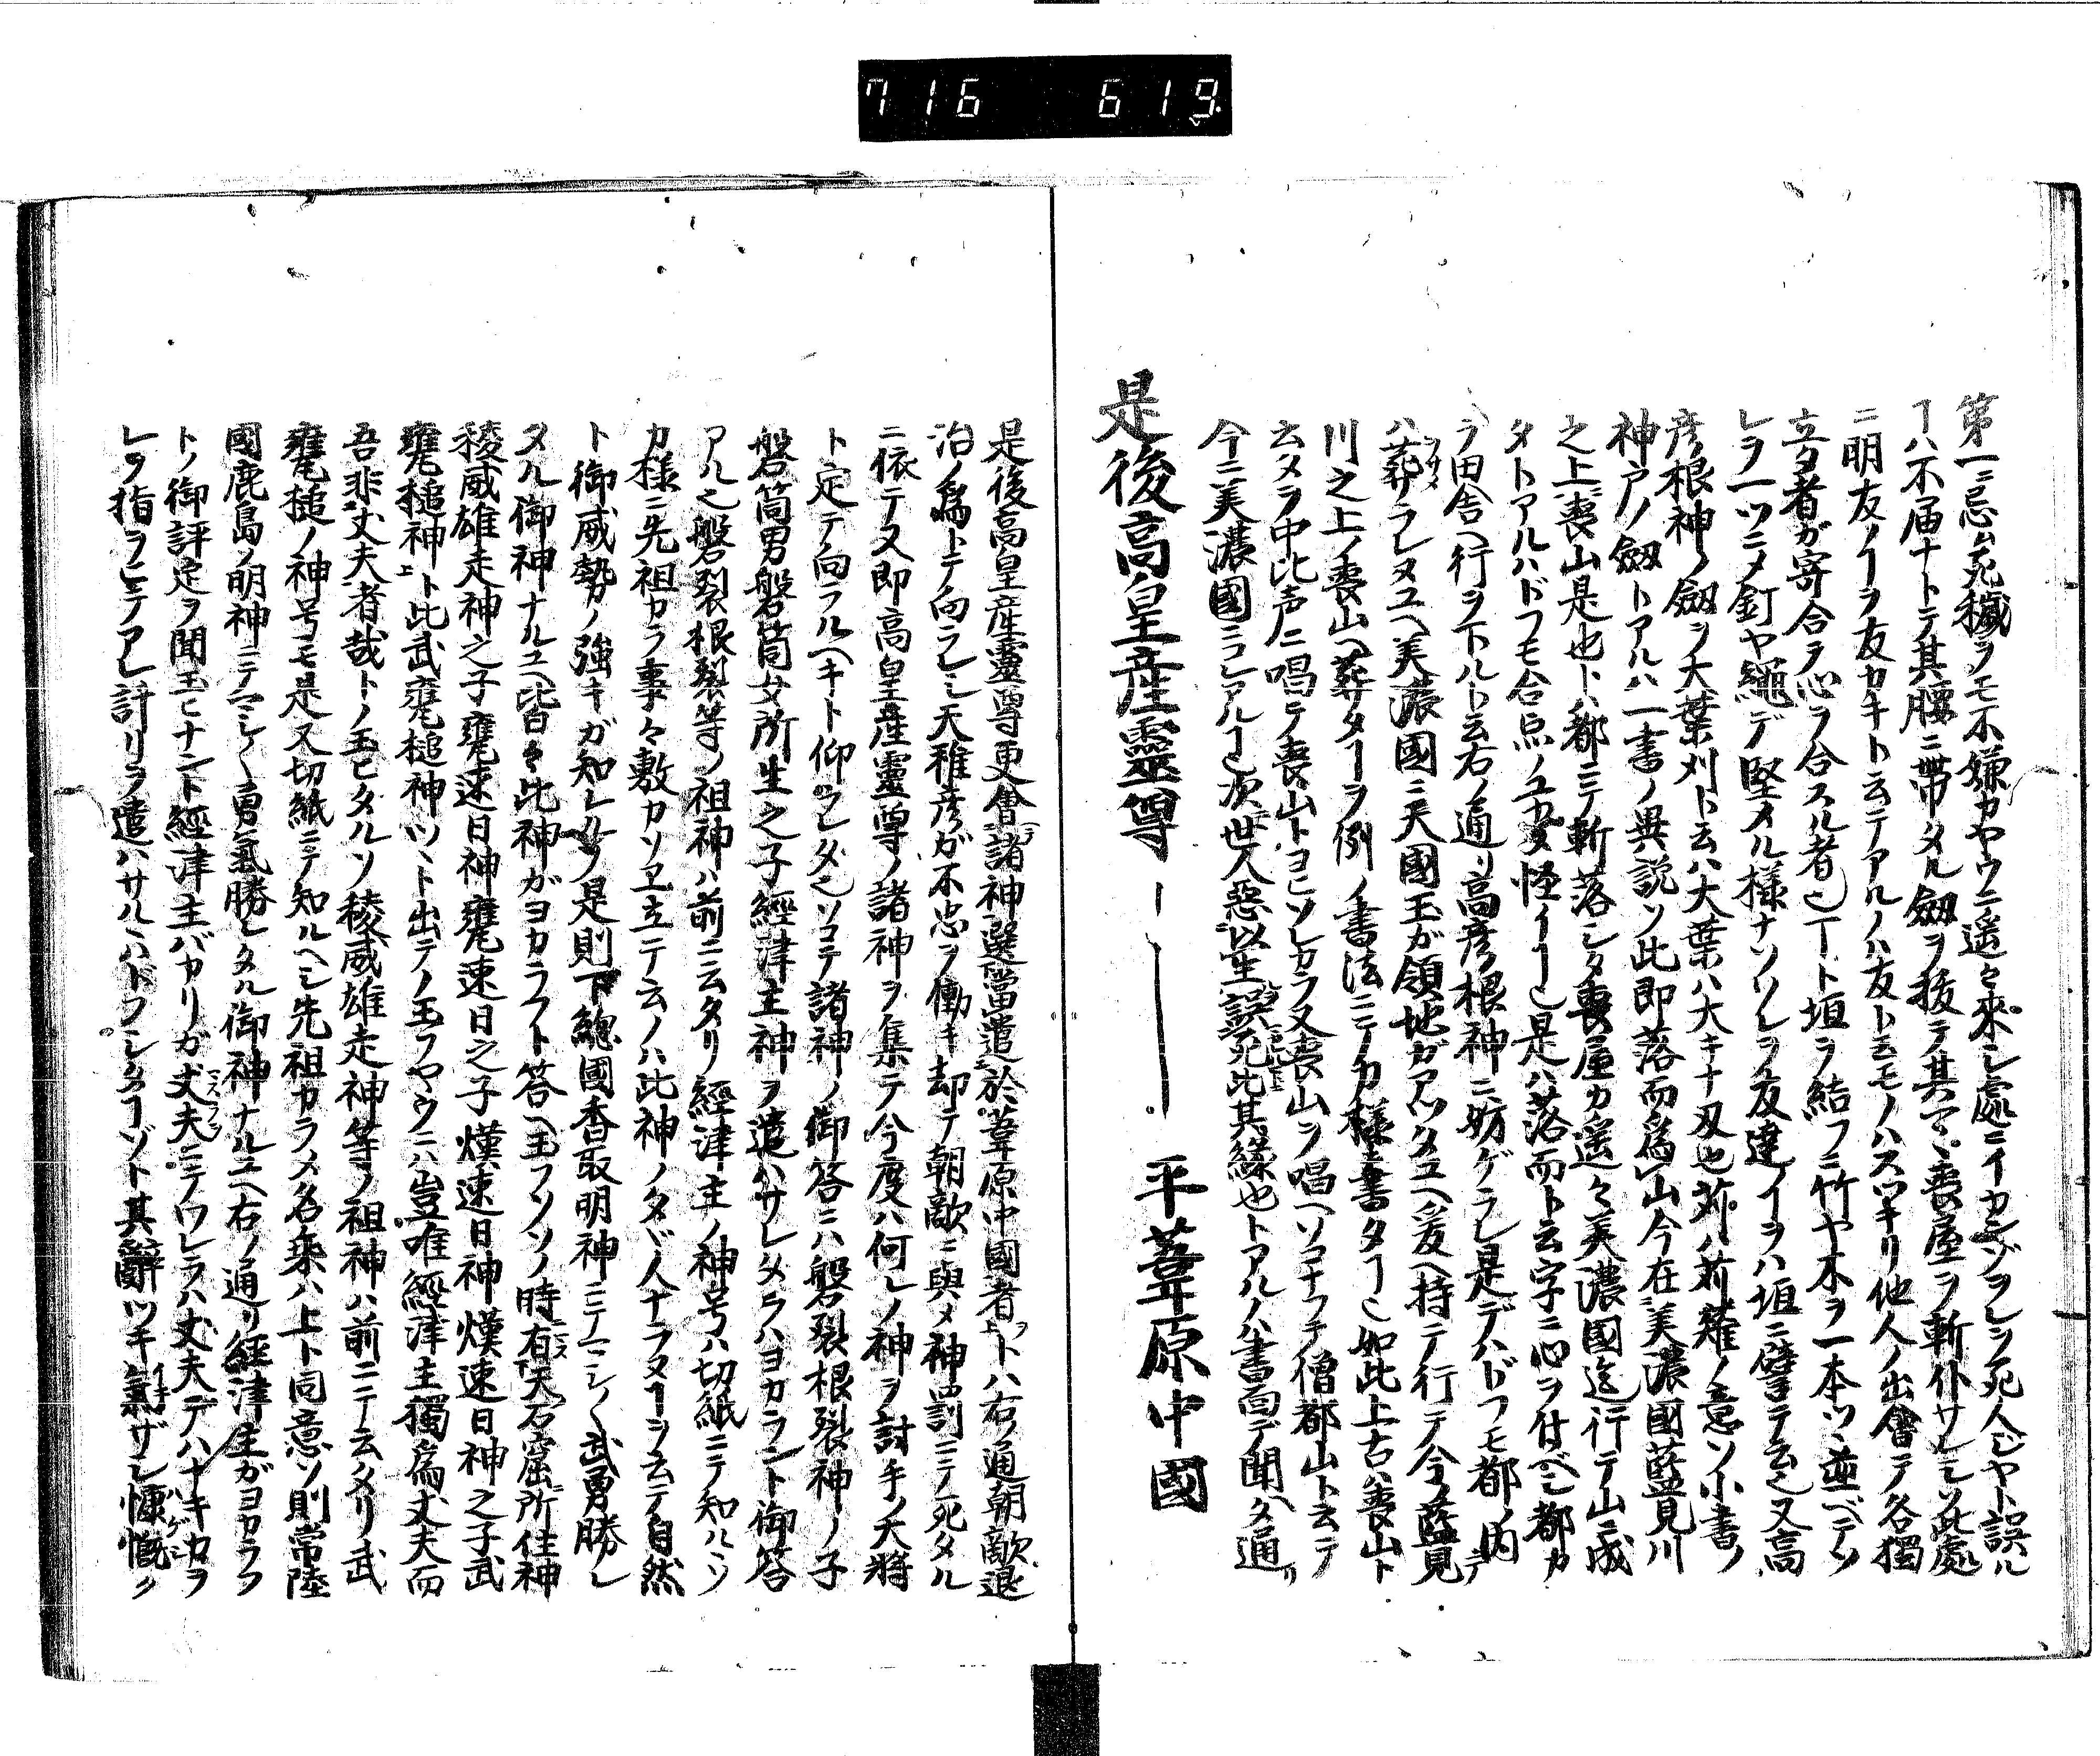 716 619
第一ニ忌ム死穢ヲモ不嫌カヤウニ遥々来シ處ニイカンゾヲレヲ死人ジヤト誤ル
ヿハ不届ナトテ其腰ニ帯タル劔ヲ拔テ其マヽ喪屋ヲ斬仆サレシソ此處
ニ明友ノヿヲ友カキト云テアルノハ友ト云モノハスツキリ他人ノ出會テ各獨
立タ者ガ寄合テ心ヲ合スル者也ト垣ヲ結フニ竹ヤ木ヲ一本ツヽ並ベテソ
レヲ一ツニメ釘ヤ繩デ堅メル様ナソソレヲ友達ノイヲハ垣ニ譬テ云也又高
彦根神ノ劔ヲ大葉刈ト云ハ大葉ハ大キナ刄也苅ハ苅薙ノ意ソ小書ノ
神戸ノ劔トアルハ一書ノ異説ソ此即落而為山今在美濃國藍見川
之上喪山是也トハ都ニテ斬落シタ喪屋カ遥々美濃國迄行テ山ニ成
タトアルハドフモ合点ノユカヌ怪イヿ也是ハ落而ト云字ニ心ヲ付ベシ都カ
ラ田舎ヘ行ヲ下ルト云右ノ通リ高彦根神ニ妨ゲラレ是デハドフモ都ノ内ニテ
ハ葬ヲサメラレヌユヘ美濃國ニ天國玉ガ領地ガアツタユヘ爰ヘ持テ行テ今ノ藍見
川之上ノ喪山ヘ葬タヿヲ例ノ書法ニテカ様ニ書タヿ也如此上古ハ喪山ト
云タヲ中比声ニ唱テ喪山トヨヒソレカラ又喪山ヲ唱ヘソコナフテ僧都山ト云テ
今ニ美濃國ニコレアルヿ也次世人惡以生誤死此其縁也トアルノハ書面デ聞ヘタ通リ
是後高皇産靈尊―――平葦原中國
是後高皇産靈尊更會諸神選當遣於葦原中國者トハ右ノ通朝敵退
治ノ為トテ向ラレシ天稚彦ガ不忠ヲ働キ却テ朝敵ニ與メ神罰ニテ死タル
ニ依テ又即高皇産靈尊ノ諸神ヲ集テ今度ハ何レノ神ヲ討手ノ大将
ト定テ向フルヘキト仰ラレタ也ソコテ諸神ノ御答ニハ磐裂根裂神ノ子
磐筒男磐筒女所生之子經津主神ヲ遣ハサレタラハヨカラント御答
アル也磐裂根裂等ノ祖神ハ前ニ云タリ經津主ノ神号ハ切紙ニテ知ルヽソ
カ様ニ先祖カラ事々敷カソヱ立テ云ノハ此神ノタヾ人ナラヌヿヲ云テ自然
ト御威勢ノ強キガ知レルソ是則下總國香取明神ニテマシ〱武勇勝レ
タル御神ナルユヘ皆々此神ガヨカラフト答ヘ玉フソソノ時有天石窟所住神
稜威雄走神之子甕速日神甕速日之子熯速日神熯速日神之子武
甕槌神ト比武甕槌神ツヽト出テノ玉フヤウニハ豈唯經津主獨為丈夫而
吾非丈夫者哉トノ玉ヒタルソ稜威雄走神等ノ祖神ハ前ニテ云タリ武
甕槌ノ神号モ是又切紙ニテ知ルヘシ先祖カラノ名乗ハ上ト同意ソ則常陸
國鹿島ノ明神ニテマシ〱勇氣勝レタル御神ナルユヘ右ノ通リ經津主ガヨカラフ
トノ御評定ヲ聞玉ヒナント經津主バカリガ丈夫マスラヲニテワレラハ丈夫デハナキカヲ
レヲ指ヲレテアレ計リヲ遣ハサルヽハドフシタヿゾト其辭ツキ氣ザシ慷慨ハゲシク